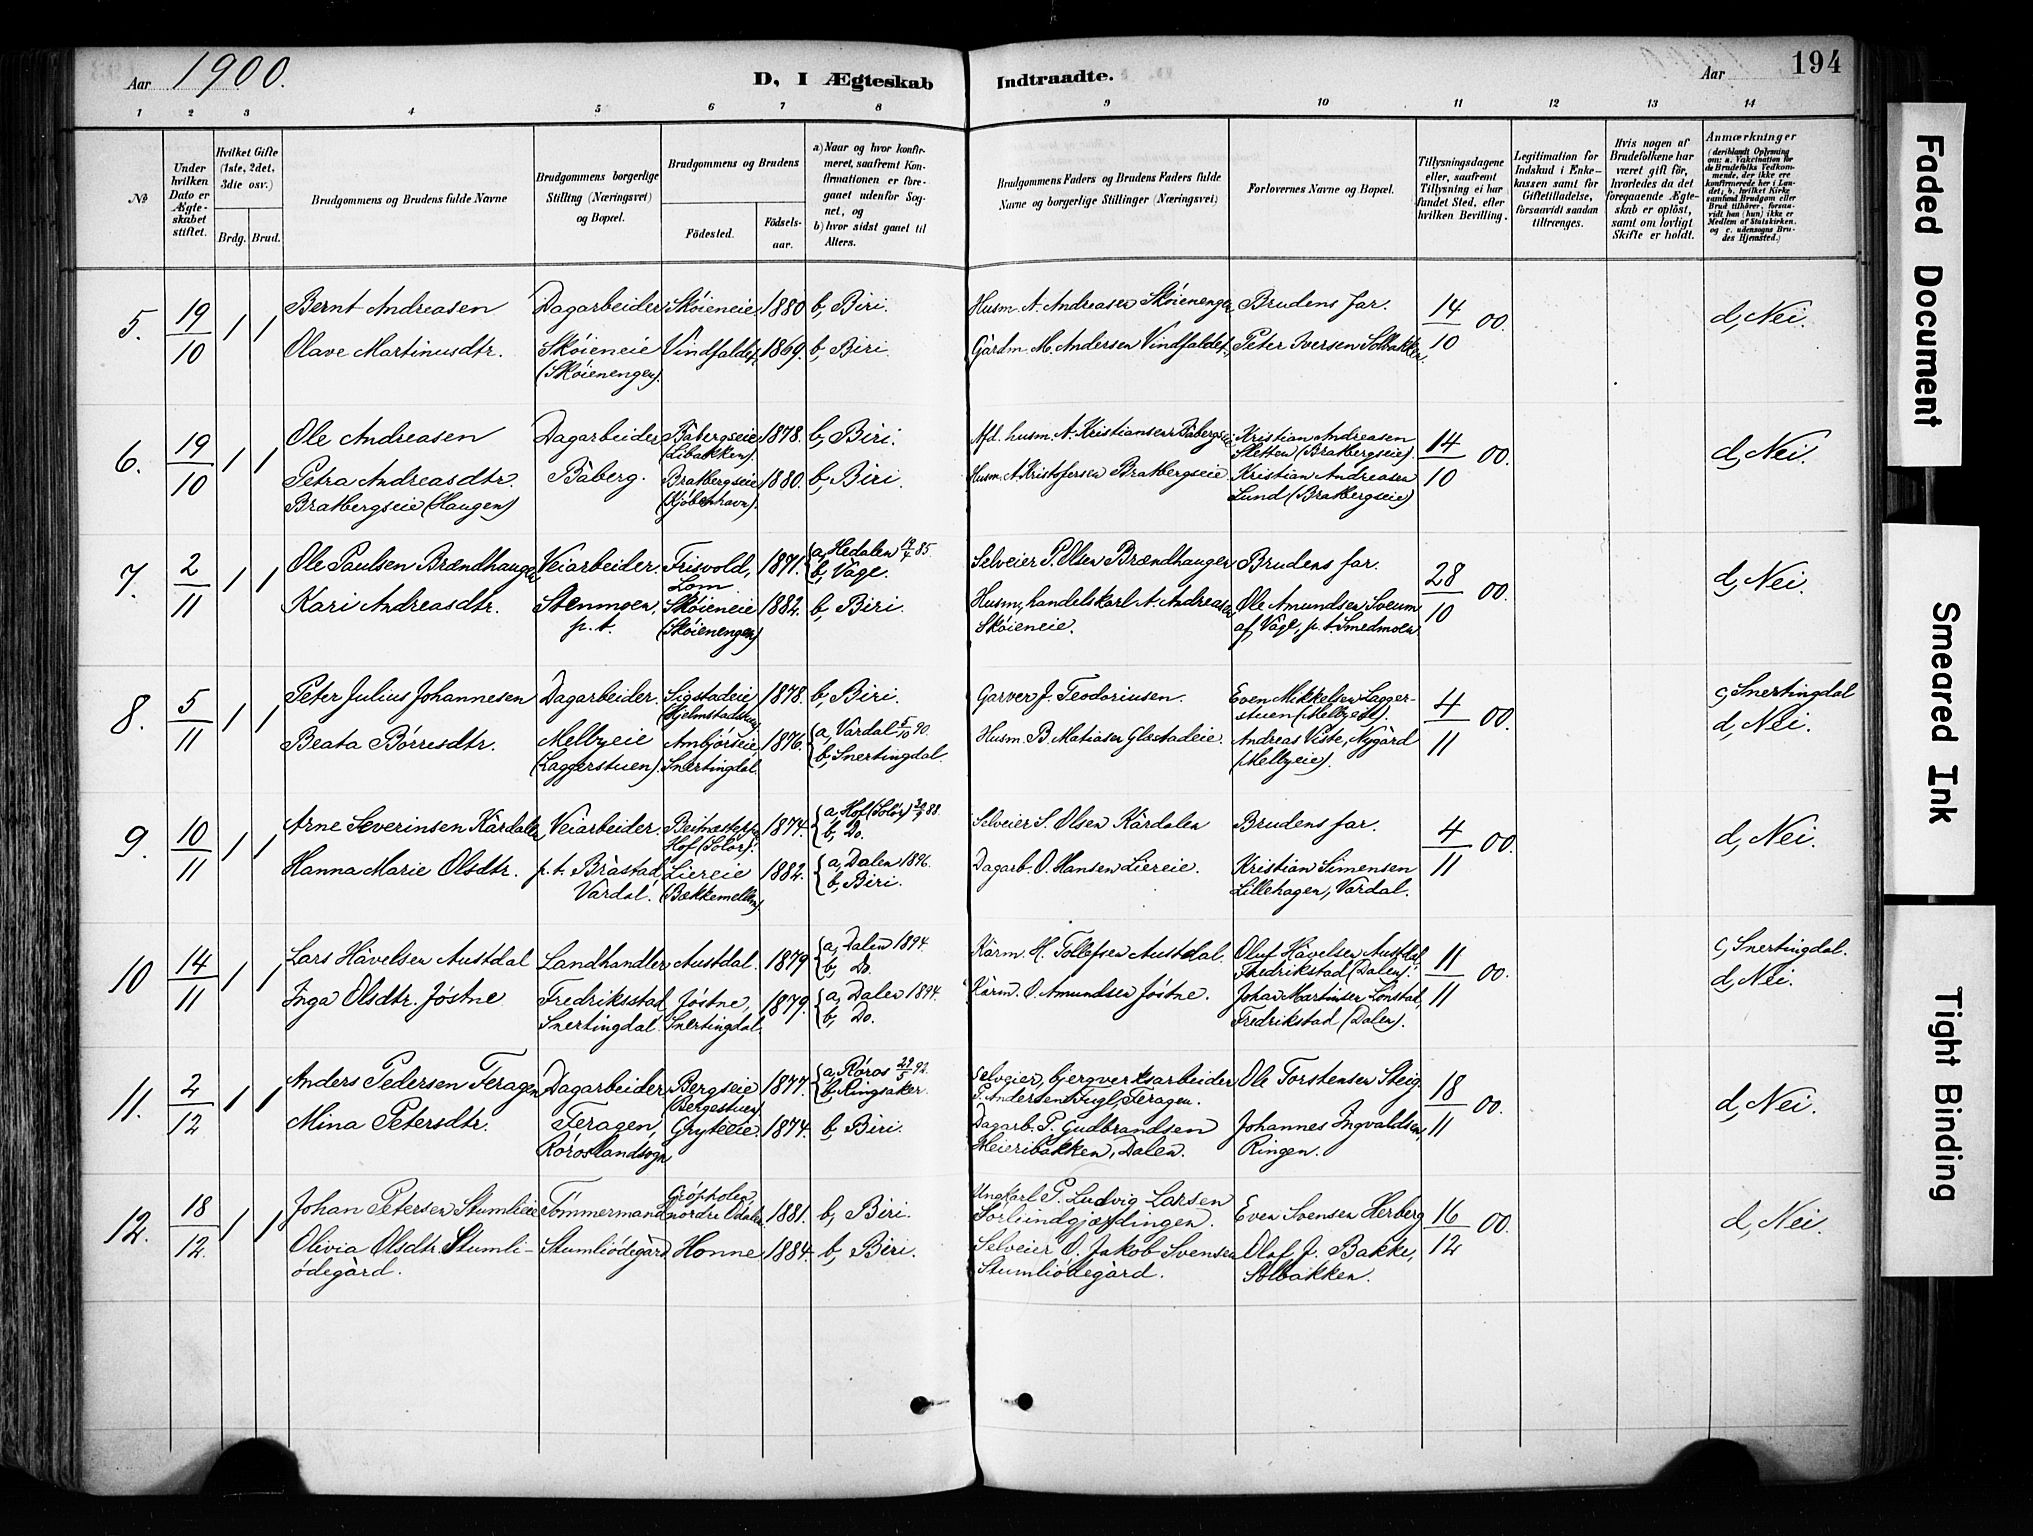 Aar 1900.
D, I Ægteskab Indtraadte.
Aar 194
1 2 3 4 5 6 7 8 9 10 11 12 13 14
№
Under hvilken Dato er Ægteskabet stiftet.
Hvilket Gifte (1ste, 2det, 3die osv.)
Brdg. Brud.
Brudgommens og Brudens fulde Navne
Brudgommens borgerlige Stilling (Næringsvei) og Bopæl.
Brudgommens og Brudens
Födested. Födsels-aar.
a) Naar og hvor konfirmeret, saafremt Konfirmationen er foregaaet udenfor Sognet, og
b) hvor sidst gaaet til Alters.
Brudgommens Faders og Brudens Faders fulde Navne og borgerlige Stillinger (Næringsvei)
Forlovernes Navne og Bopæl.
Tillysningsdagene eller, saafremt Tillysning ei har fundet Sted, efter hvilken Bevilling.
Legitimation for Indskud i Enkekassen samt for Giftetilladelse, forsaavidt saadan tiltrænges.
Hvis nogen af Brudefolkene har været gift för, hvorledes da det foregaaende Ægteskab er oplöst, samt om lovligt Skifte er holdt.
Anmærkninger (deriblandt Oplysning om: a. Vakcination for de Brudefolks Vedkommende, der ikke ere konfirmerede her i Landet; b. hvilket Kirkesamfund Brudgom eller Brud tilhörer, forsaavidt han (hun) ikke er Medlem af Statskirken, og c. udensogns Brudes Hjemsted.)
5. 19/10 1 1 Bernt Andreasen Dagarbeider Skóieneie 1880 b, Biri. Husm. A. Andreasen Skóienengen Brudens far. 14/10 00. d, Nei.
Olave Martinusdtr. Skóieneie (Skóienengen). Vindfaldet, 1869. b, Biri. Gàrdm. M. Andersen Vindfaldet, Peter Iversen Solbakken.
6. 19/10 1 1 Ole Andreasen Dagarbeider Bàbergseie (Libakken). 1878. b, Biri. Afd. husm. A. Kristiansen Bàbergseie Kristian Andreasen Sletten (Bratbergseie) 14/10 00. d, Nei.
Petra Andreasdtr. Bratbergseie (Haugen) Bàberg. Bratbergseie (Kjóbenhavn). 1880. b, Biri. Husm. A. Kristofersen Bratbergseie Kristian Andreasen Lund (Bratbergseie)
7. 2/11 1 1 Ole Paulsen Brændhaugen Veiarbeider. Frisvold, Lom 1871. a, Hedalen 19/4 85. b, Vàge. Selveier P. Olsen Brændhaugen Brudens far. 28/10 00. d, Nei.
Kari Andreasdtr. Stenmoen, p.t. Skóieneie (Skóienengen) 1882. b, Biri. Husm., handelskarl A. Andreasen Skóieneie. Ole Amundsen Sveum af Vàge, p.t. Smedmoen
8. 5/11 1 1 Peter Julius Johannesen Dagarbeider. Sigstadeie (Hjelmstadstuen) 1878. b, Biri. Garver J. Teodoriusen. Even Mikkelsen Laggerstuen (Melbyeie). 4/11 00. c, Snertingdal d, Nei.
Beata Bórresdtr. Melbyeie (Laggerstuen). Ambjórseie Snertingdal. 1876. a, Vardal 5/10 90. b, Snertingdal. Husm. B. Matiasen Glæstadeie. Andreas Viste, Nygàrd (Melbyeie).
9. 10/11 1 1 Arne Severinsen Kàrdalen Veiarbeider. Hof (Solór). 1874. a, Hof (Solór) 88. b, Do. Selveier S. Olsen Kàrdalen Brudens far. 4/11 00. d, Nei.
Hanna Marie Olsdtr. p.t. Bràstad, Vardal. Liereie (Bækkemellem) 1882. a, Dalen 1896. b, Biri. Dagarb. O. Hansen Liereie. Kristian Simensen Lillehagen, Vardal.
10 14/11 1 1 Lars Hàvelsen Austdal Landhandler Austdal. 1879 a, Dalen 1894. b, Do. Kàrm. H. Tollefsen Austdal. Oluf Hàvelsen Austdal, Fredrikstad (Dalen). 11/11 00. c, Snertingdal. d, Nei.
Inga Olsdtr. Jóstne Fredriksstad, Snertingdal. Jóstne, Snertingdal. 1879. a, Dalen 1894. b, Do. Kàrm. O. Amundsen Jóstne. Johan Martinsen Lónstad, Fredrikstad (Dalen).
11. 2/12 1 1 Anders Pedersen Feragen Dagarbeider Bergseie (Bergestuen) 1877. a, Róros 29/5 92. b, Ringsaker. Selveier, bjergverksarbeider P. Andersen Fugl, Feragen. Ole Torstensen Steig 18/11 00. d, Nei.
Mina Petersdtr. Feragen, Róros landsogn Gryteeie. 1874. b, Biri. Dagarb. P. Gudbrandsen Meieribakken, Dalen. Johannes Ingvaldsen, Ringen.
12. 18/12. 1 1 Johan Petersen Stumlieie Tómmermand nordre Odalen 1881. b, Biri. Ungkarl P. Ludvig Larsen Even Svensen Herberg 16/12 00. d, Nei.
Olivia Olsdtr. Stumliódegàrd. Stumliódegàrd Honne 1884. b, Biri. Selveier O. Jakob Svensen Stumliódegàrd. Olaf J. Bakke, Solbakken.
Faded Document
Smeared Ink
Tight Binding